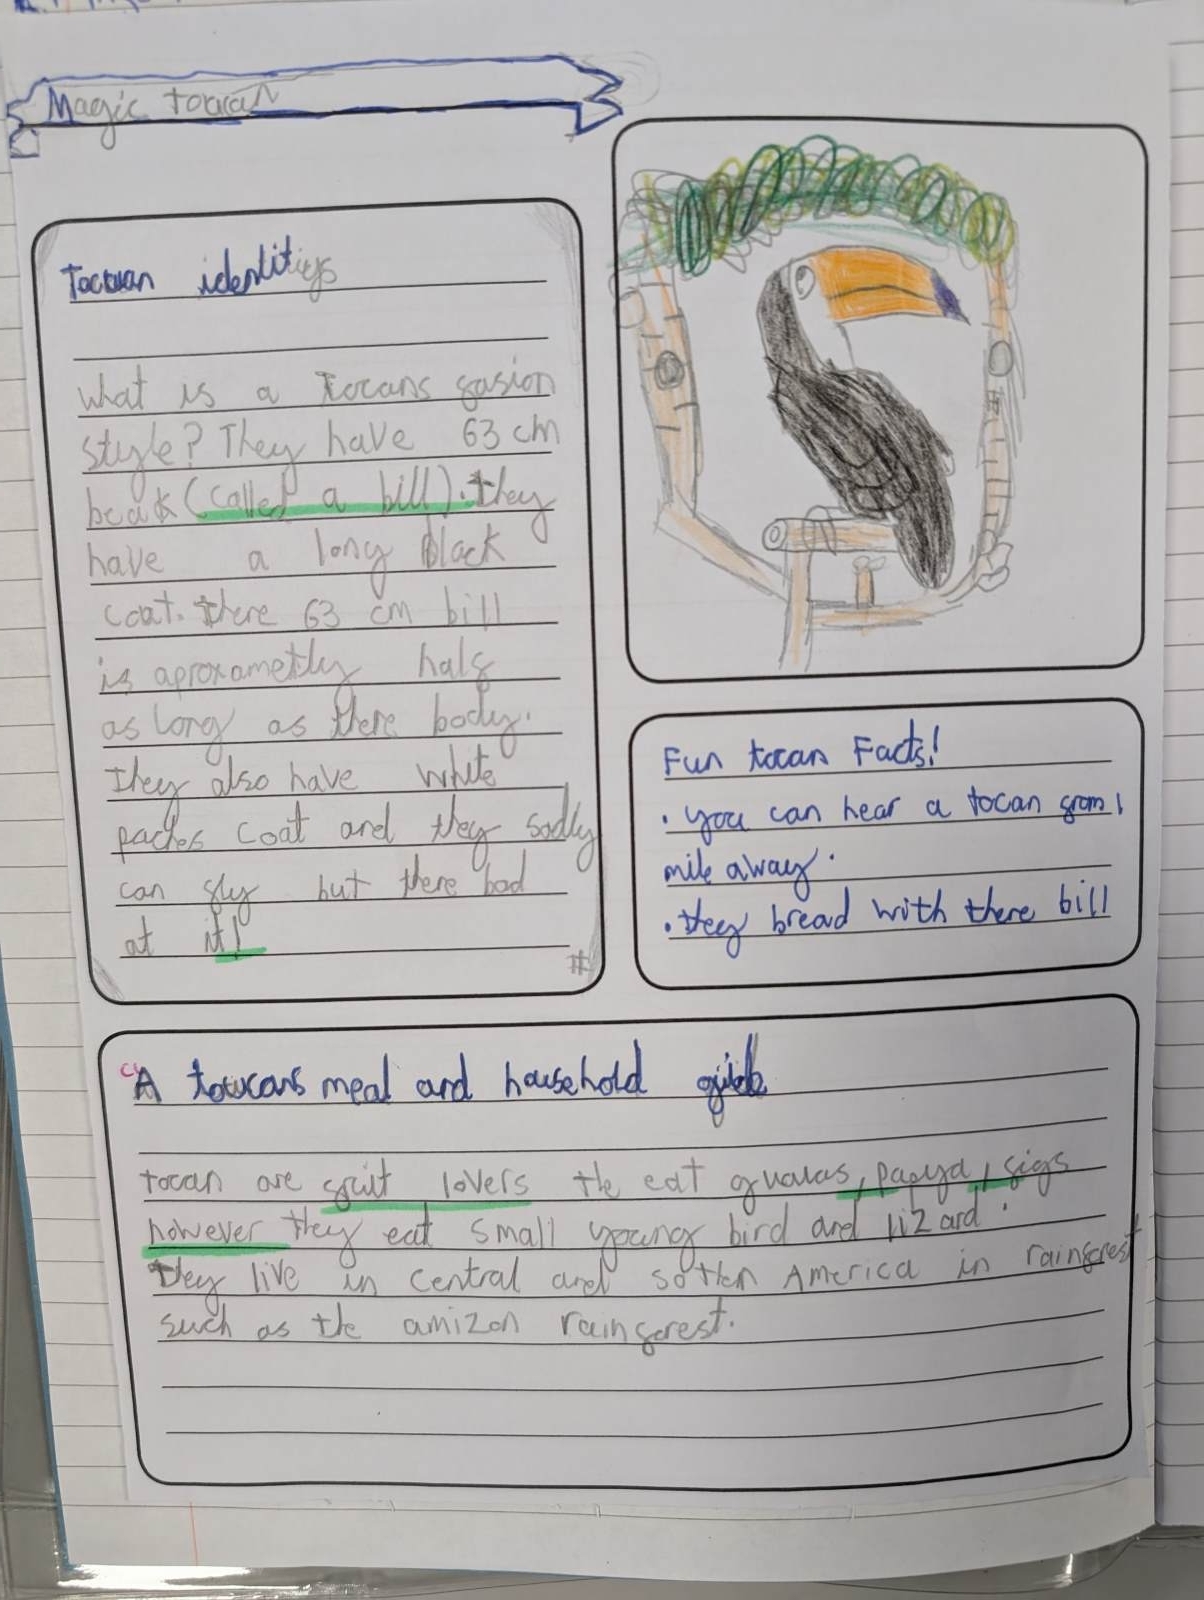 Magic toucan
Tocuan identitiys
what is a tocans fasion
style? They have 63 cm
beak (called a bill). they
have a long black
coat. there 63 cm bill
is aproxametly half
as long as there body.
They also have white
paches coat and they sadly
can fly but there bad
at it!
#
Fun tocan Facts!
. you can hear a tocan from 1
mile away.
. they bread with there bill
A toucans meal and household guide
tocan are fruit lovers the eat guavas, papya, figs
however they eat small young bird and lizard.
They live in central and sothen America in rainforest
such as the amizon rainforest.